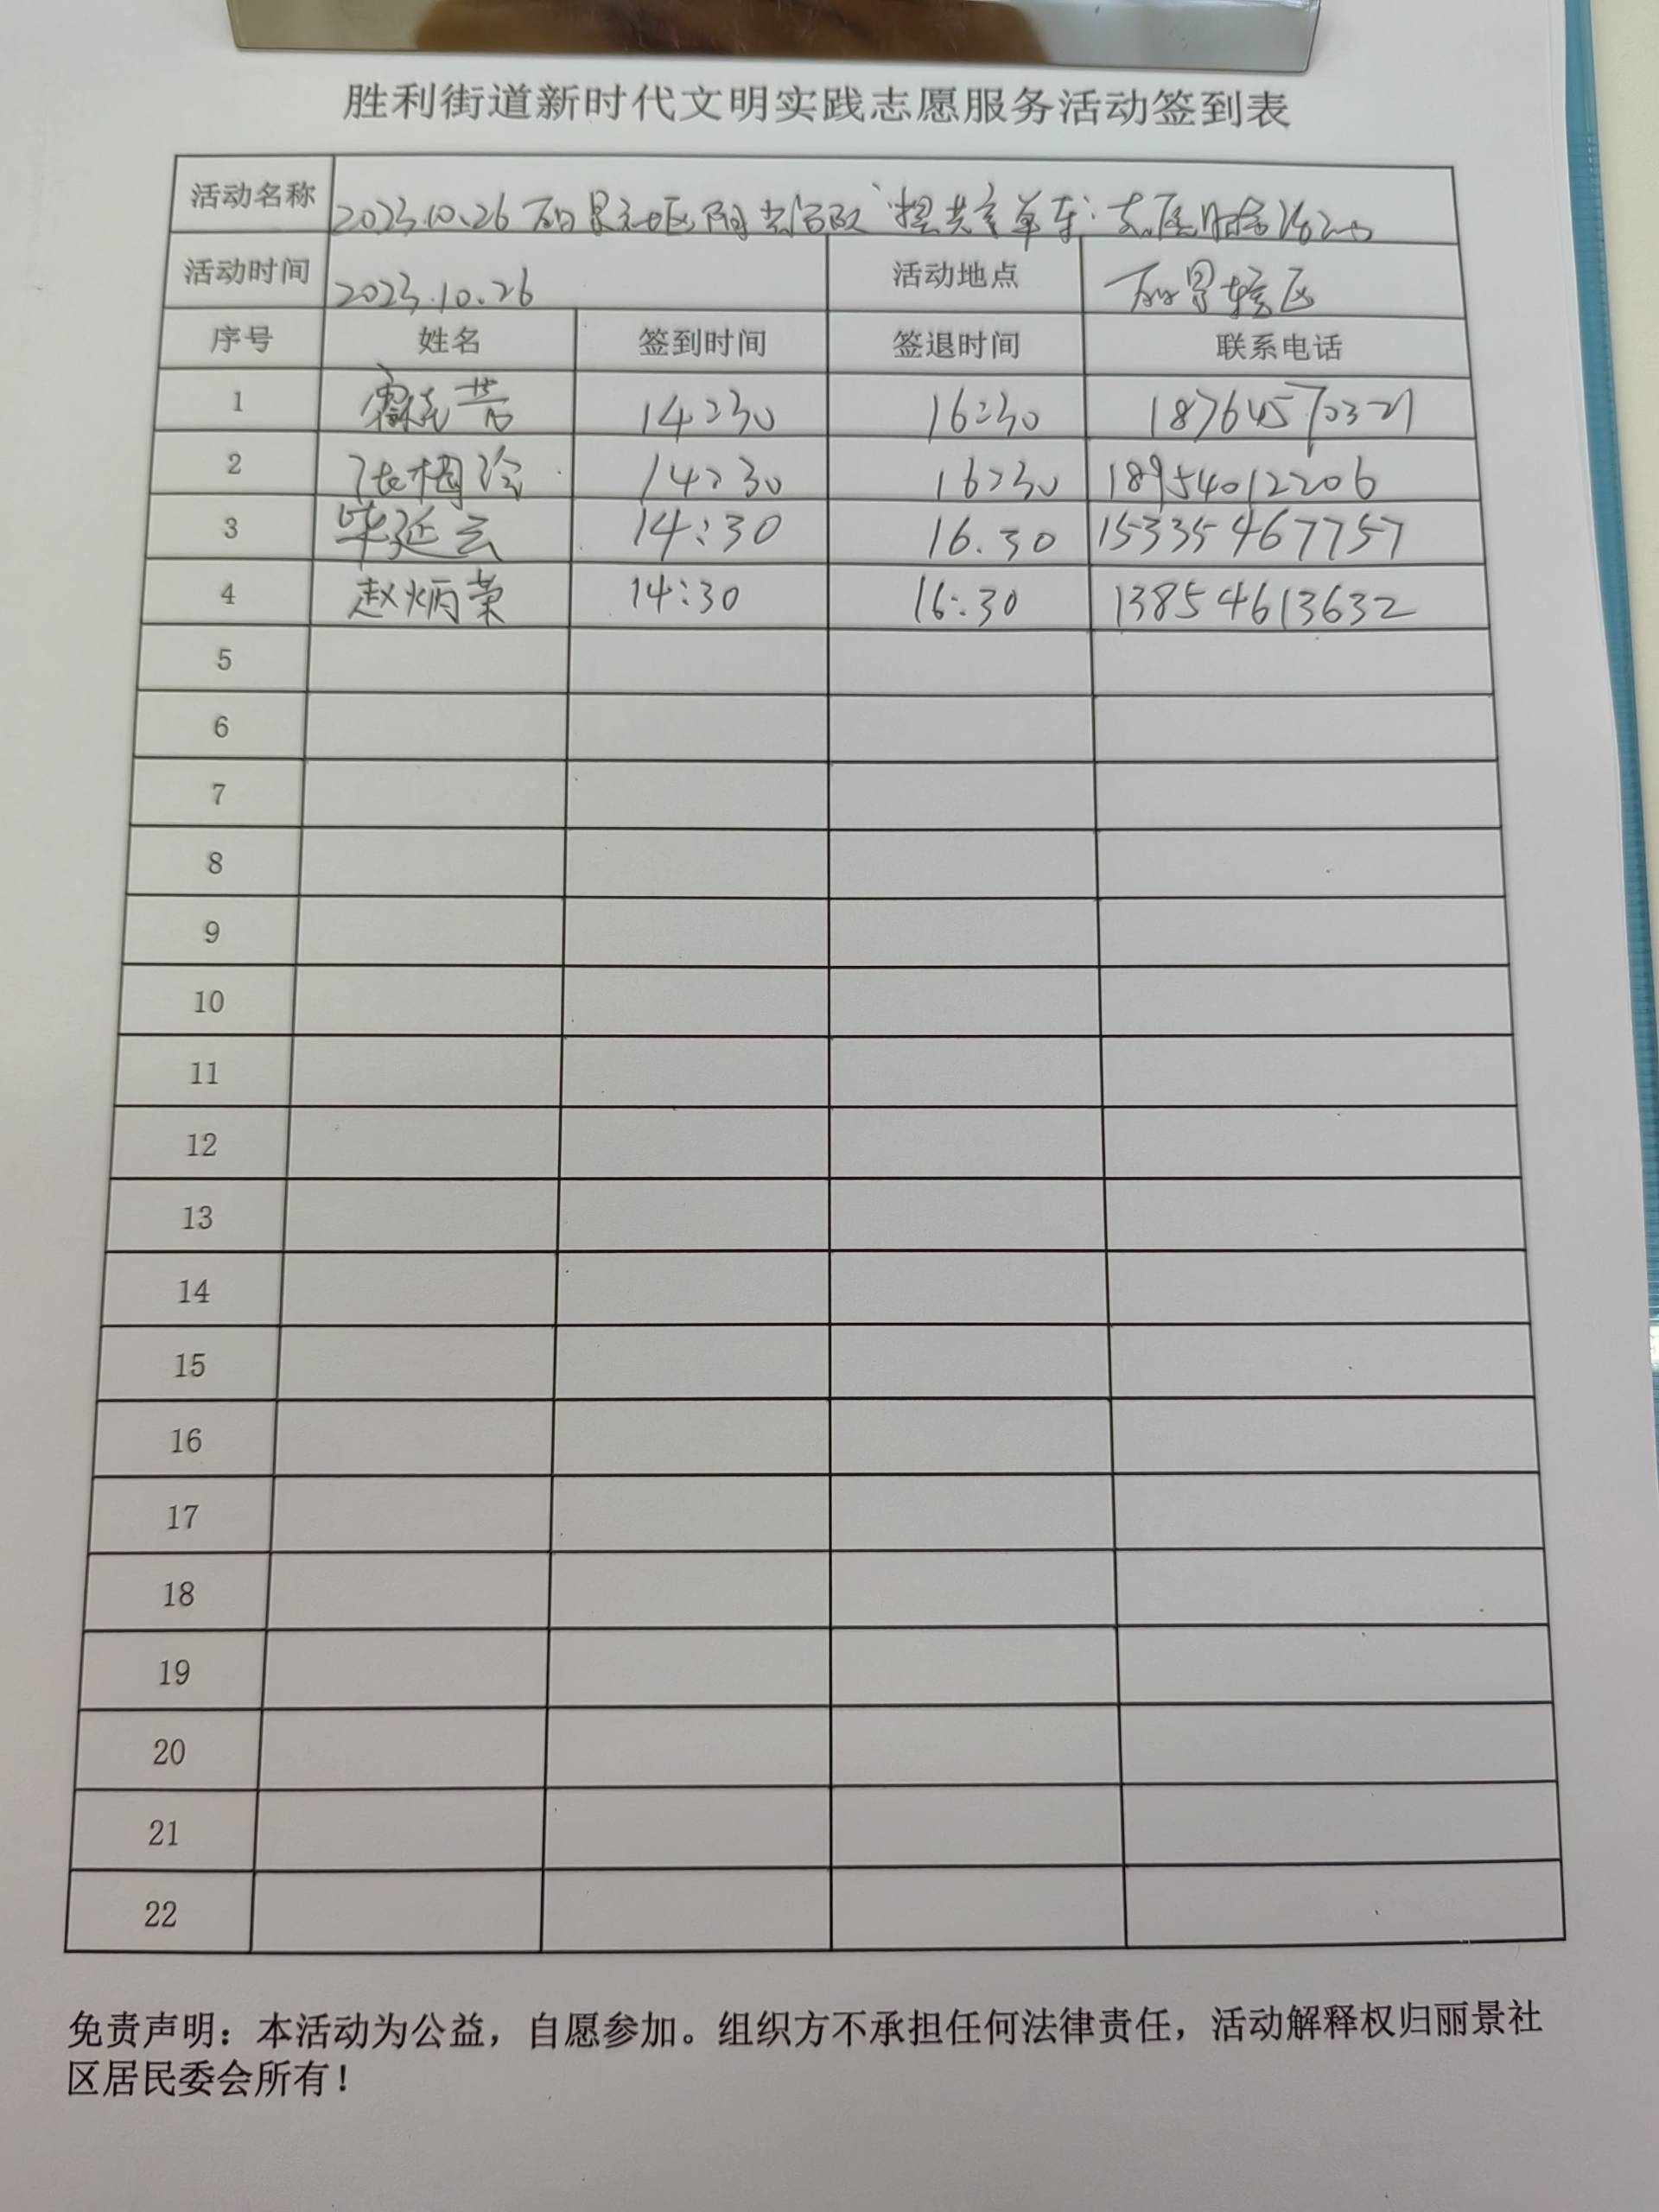 胜利街道新时代文明实践志愿服务活动签到表
活动名称 2023.10.26 丽景社区阳光 "摆共享单车" 志愿服务活动
活动时间 2023.10.26 活动地点 丽景辖区
序号 姓名 签到时间 签退时间 联系电话
1 14:30 16:30 18764570321
2 张梅 14:30 16:30 18954012206
3 毕延云 14:30 16.30 15335467757
4 赵炳荣 14:30 16:30 13854613632
5
6
7
8
9
10
11
12
13
14
15
16
17
18
19
20
21
22
免责声明：本活动为公益，自愿参加。组织方不承担任何法律责任，活动解释权归丽景社
区居民委会所有！